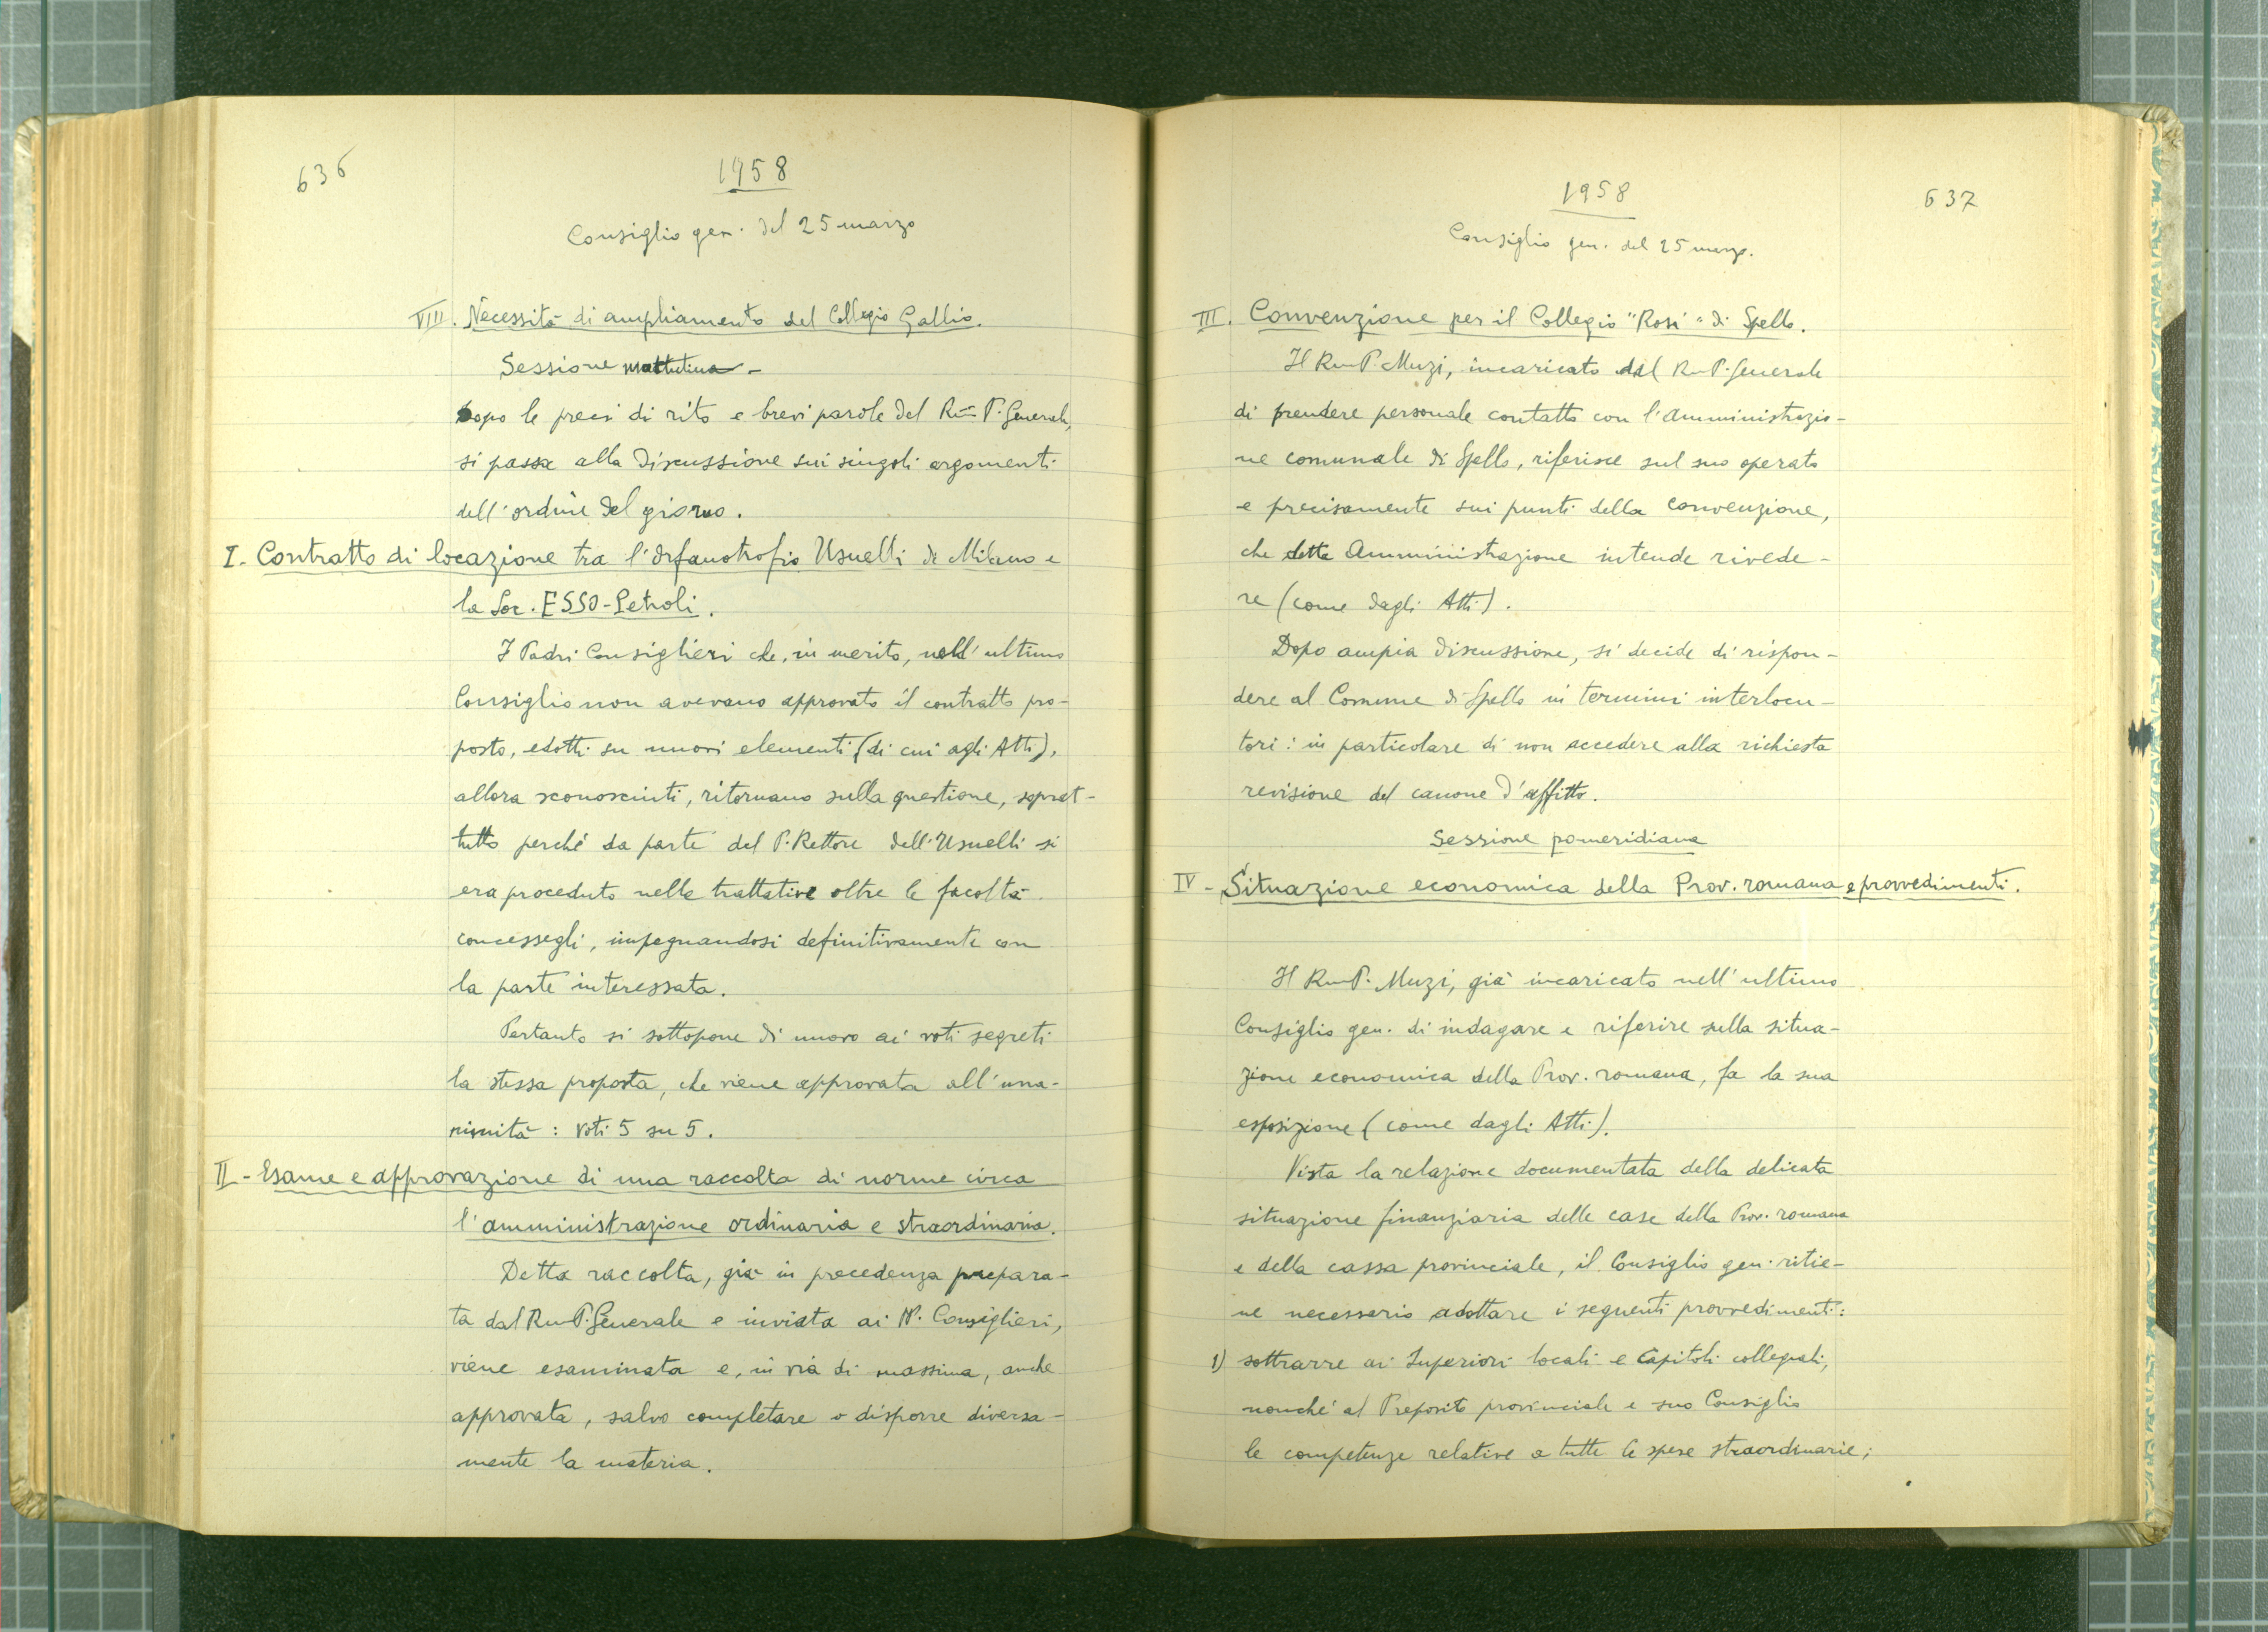 636
1958
Consiglio gen. del 25 marzo
VIII. Necessità di ampliamento del Collegio Gallio.
Sessione mattutina -
Dopo le preci di rito e brevi parole del Rm̃ P. Generale,
si passa alla discussione sui singoli argomenti
dell'ordine del giorno.
I. Contratto di locazione tra l'Orfanotrofio Usuelli di Milano e
la Soc. ESSO-Petroli.
I Padri Consiglieri che, in merito, nell'ultimo
Consiglio non avevano approvato il contratto pro-
posto, edotti su nuovi elementi (di cui agli Atti),
allora sconosciuti, ritornano sulla questione, soprat-
tutto perché da parte del P. Rettore dell'Usuelli si
era proceduto nelle trattative oltre le facoltà
concessegli, impegnandosi definitivamente con
la parte interessata.
Pertanto si sottopone di nuovo ai voti segreti
la stessa proposta, che viene approvata all'una-
nimità: voti 5 su 5.
II - Esame e approvazione di una raccolta di norme circa
l'amministrazione ordinaria e straordinaria.
Detta raccolta, già in precedenza prepara-
ta dal Rm P. Generale e inviata ai PP. Consiglieri,
viene esaminata e, in via di massima, anche
approvata, salvo completare o disporre diversa-
mente la materia.
1958
637
Consiglio gen. del 25 marzo.
III. Convenzione per il Collegio "Rosi" di Spello.
Il Rm P. Muzi, incaricato dal Rm P. Generale
di prendere personale contatto con l'Amministrazio-
ne comunale di Spello, riferisce sul suo operato
e precisamente sui punti della convenzione,
che detta Amministrazione intende rivede-
re (come dagli Atti).
Dopo ampia discussione, si decide di rispon-
dere al Comune di Spello in termini interlocu-
tori: in particolare di non accedere alla richiesta
revisione del canone d'affitto.
Sessione pomeridiana
IV - Situazione economica della Prov. romana e provvedimenti.
Il Rm P. Muzi, già incaricato nell'ultimo
Consiglio gen. di indagare e riferire sulla situa-
zione economica della Prov. romana, fa la sua
esposizione (come dagli Atti).
Vista la relazione documentata della delicata
situazione finanziaria delle case della Prov. romana
e della cassa provinciale, il Consiglio gen. ritie-
ne necessario adottare i seguenti provvedimenti:
1) sottrarre ai Superiori locali e Capitoli collegiali,
nonché al Preposito provinciale e suo Consiglio
le competenze relative a tutte le spese straordinarie;